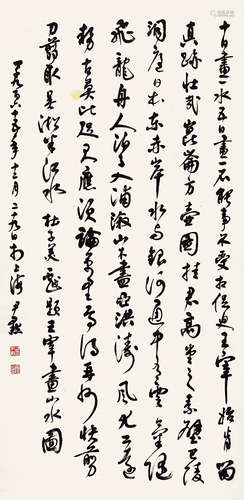 十日畫一水五日畫一石能事不受相促迫王宰始肯留
真跡壯哉崑崙方壺圖挂君高堂之素壁巴陵
洞庭日本東赤岸水與銀河通中有雲氣隨
飛龍舟人漁子入浦漵山木盡亞洪濤風尤工遠
勢古莫比咫尺應須論萬里焉得并州快剪
刀剪取吳淞半江水 杜子美戲題王宰畫山水圖
年十二月二十九日於上海 尹默